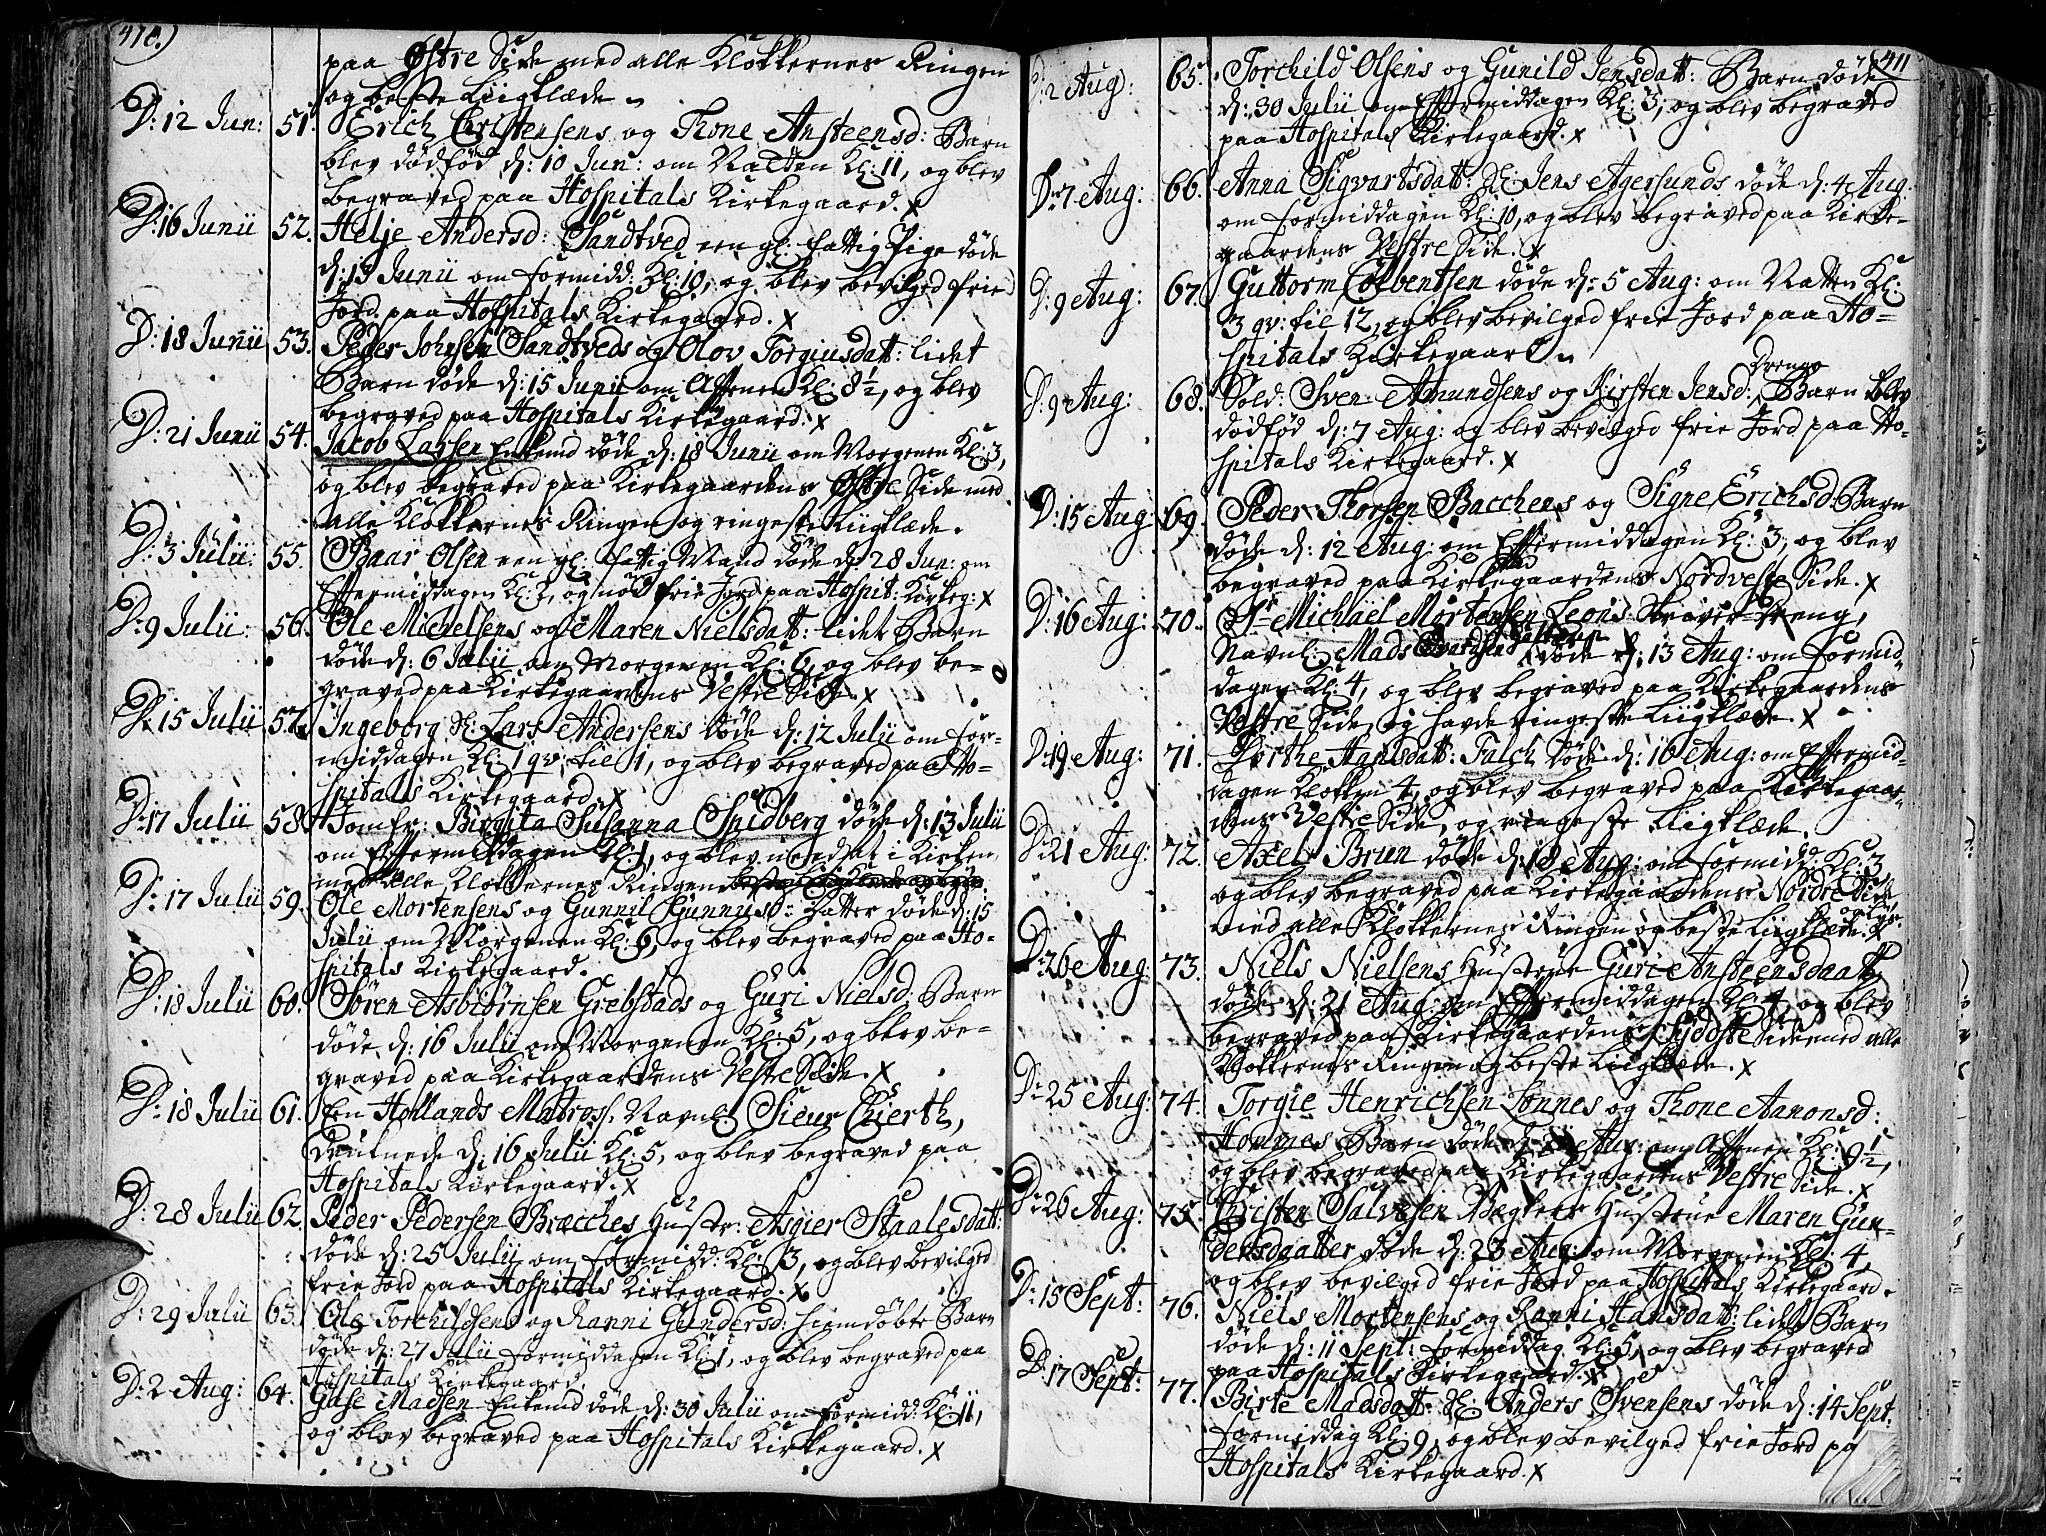 410.)
paa Østre Side med alle Klokkernes Ringen
og beste Liigklæde
D: 12 Jun: 51. Erich Christensens og Thone Ansteensd: Barn
blev dødfød d: 10 Jun: om Natten Kl: 11, og blev
begraved paa Hospitals Kirkegaard. x
D: 16 Junii 52. Helje Andersd: Sandtved een gl: fattig Pige døde
d: 13 Junii om formidd: Kl: 10, og blev bevilged frie
Jord paa Hospitals Kirkegaard. x
D: 18 Junii 53. Peder Johnsen Sandtveds og Olov Torgiusdatt: lidet
Barn døde d: 15 Junii om Aftenen Kl: 8½, og blev
begraved paa Hospitals Kirkegaard. x
D: 21 Junii 54. Jacob Lassen Enkemd døde d: 18 Junii om Morgenen Kl: 3,
og blev begraved paa Kirkegaardens Østre Side med
alle Klokkernes Ringen og ringeste Liigklæde.
D: 3 Julii: 55. Baar Olsen een gl: fattig Mand døde d: 28 Jun: om
Eftermiddagen Kl: 2, og nød frie Jord paa Hospit: Kirkeg: x
D: 9 Julii: 56. Ole Michelsens og Maren Nielsdatt: lidet Barn
døde d: 6 Julii om Morgenen Kl: 6, og blev be-
graved paa Kirkegaardens Vestre Side. x
D: 15 Julii 57. Ingeborg Sl: Lars Andersens døde d: 12 Julii om for-
middagen Kl: 1 qv: til 1, og blev begraved paa Ho-
spitals Kirkegaard x
D: 17 Julii 58. Jomfr: Birgita Susanna Spidberg døde d: 13 Julii
om Eftermiddagen Kl: 1, og blev nedsat i Kirken
med alle Klokkernes Ringen
D: 17 Julii 59. Ole Mortensens og Gunnil Gunnusd: Datter døde d: 15
Julii om Morgenen Kl: 6, og blev begraved paa Ho-
spitals Kirkegaard.
D: 18 Julii 60. Søren Asbiørnsen Grebstads og Guri Nielsd: Barn
døde d: 16 Julii om Morgenen Kl: 5, og blev be-
graved paa Kirkegaardens Vestre Side. x
D: 18 Julii 61. Een Hollands Matros, Navnl: Sieur Cherth,
druknede d: 16 Julii Kl: 5, og blev begraved paa
Hospitals Kirkegaard. x
D: 28 Julii 62. Peder Pedersen Bræcches Hustr: Asgier Staalesdatt:
døde d: 25 Julii om formidd: Kl: 3, og blev bevilged
frie Jord paa Hospitals Kirkegaard. x
D: 29 Julii 63. Ole Torchildsens og Ranni Gundersd: hiemdøbte Barn
døde d: 27 Julii formiddagen Kl: 1, og blev begraved paa
Hospitals Kirkegaard.
D: 2 Aug: 64. Gase Madsen Enkemd døde d: 30 Julii om formidd: Kl: 11,
og blev begraved paa Hospitals Kirkegaard. x
411
D: 2 Aug: 65. Torchild Olsens og Gunild Jensdatt: Barn døde
d: 30 Julii om Eftermiddagen Kl: 3, og blev begraved
paa Hospitals Kirkegaard. x
D: 7 Aug: 66. Anna Sigvartsdatt: Sl: Jens Agersunds døde d: 4 Aug.
om formiddagen Kl: 10, og blev begraved paa Kirke-
gaardens Vestre Side. x
D: 9 Aug: 67. Guttorm Colbentsen døde d: 5 Aug: om Natten Kl:
3 qv: til 12, og blev bevilged frie Jord paa Ho-
spitals Kirkegaard
D: 9 Aug: 68. Sold: Sven Amundsens og Kirsten Jensd: Drenge Barn blev
dødfød d: 7 Aug: og blev bevilged frie Jord paa Ho-
spitals Kirkegaard. x
D: 15 Aug: 69. Peder Thorsen Bacchens og Signe Erichsd: Barn
døde d: 12 Aug: om Eftermiddagen Kl: 3, og blev
begraved paa Kirkegaardens Nordvestre Side. x
D: 16 Aug: 70. Sr Michael Mortensen Leons Skriver-Dreng,
Navnl: Mads døde d: 13 Aug: om formid-
dagen Kl: 4, og blev begraved paa Kirkegaardens
Vestre Side og havde ringeste Liigklæde. x
D: 19 Aug: 71. Dorthe Hansdatt: Falch døde d: 16 Aug: om Eftermid-
dagen Klokken 4, og blev begraved paa Kirkegaar-
dens Vestre Side, og ringeste Liigklæde.
D: 21 Aug: 72. Axel Brun døde d: 18 Aug: om formidd: Kl: 3
og blev begraved paa Kirkegaardens Nordre Side
med alle Klokkernes Ringen og beste Liigklæde. x
D: 26 Aug: 73. Niels Nielsens Hustrue Guri Ansteensdaatt:
døde d: 21 Aug: om Eftermiddagen Kl: 4 og blev
begraved paa Kirkegaardens Sydøste Side med alle
Klokkernes Ringen og beste Liigklæde. x
D: 25 Aug: 74. Torgie Henrichsen Lonnes og Thone Aanonsd:
Hommes Barn døde d: Aug: om Aftenen Kl: 9½,
og blev begraved paa Kirkegaardens Vestre Side. x
D: 26 Aug: 75. Christen Salvesen Hustrue Maren Gun-
dersdaatter døde d: 23 Aug: om Morgenen Kl: 4,
og blev bevilged frie Jord paa Hospitals Kirkegaard.
D: 15 Sept: 76. Niels Mortensens og Ranni Hansdatt: lidet Barn
døde d: 11 Sept: formiddag Kl: 5, og blev begraved
paa Hospitals Kirkegaard. x
D: 17 Sept: 77. Birte Madsdatt: Sl: Anders Svensens døde d: 14 Sept:
formiddag Kl: 9, og blev bevilged frie Jord pa
Hospitals Kirkegaard. x